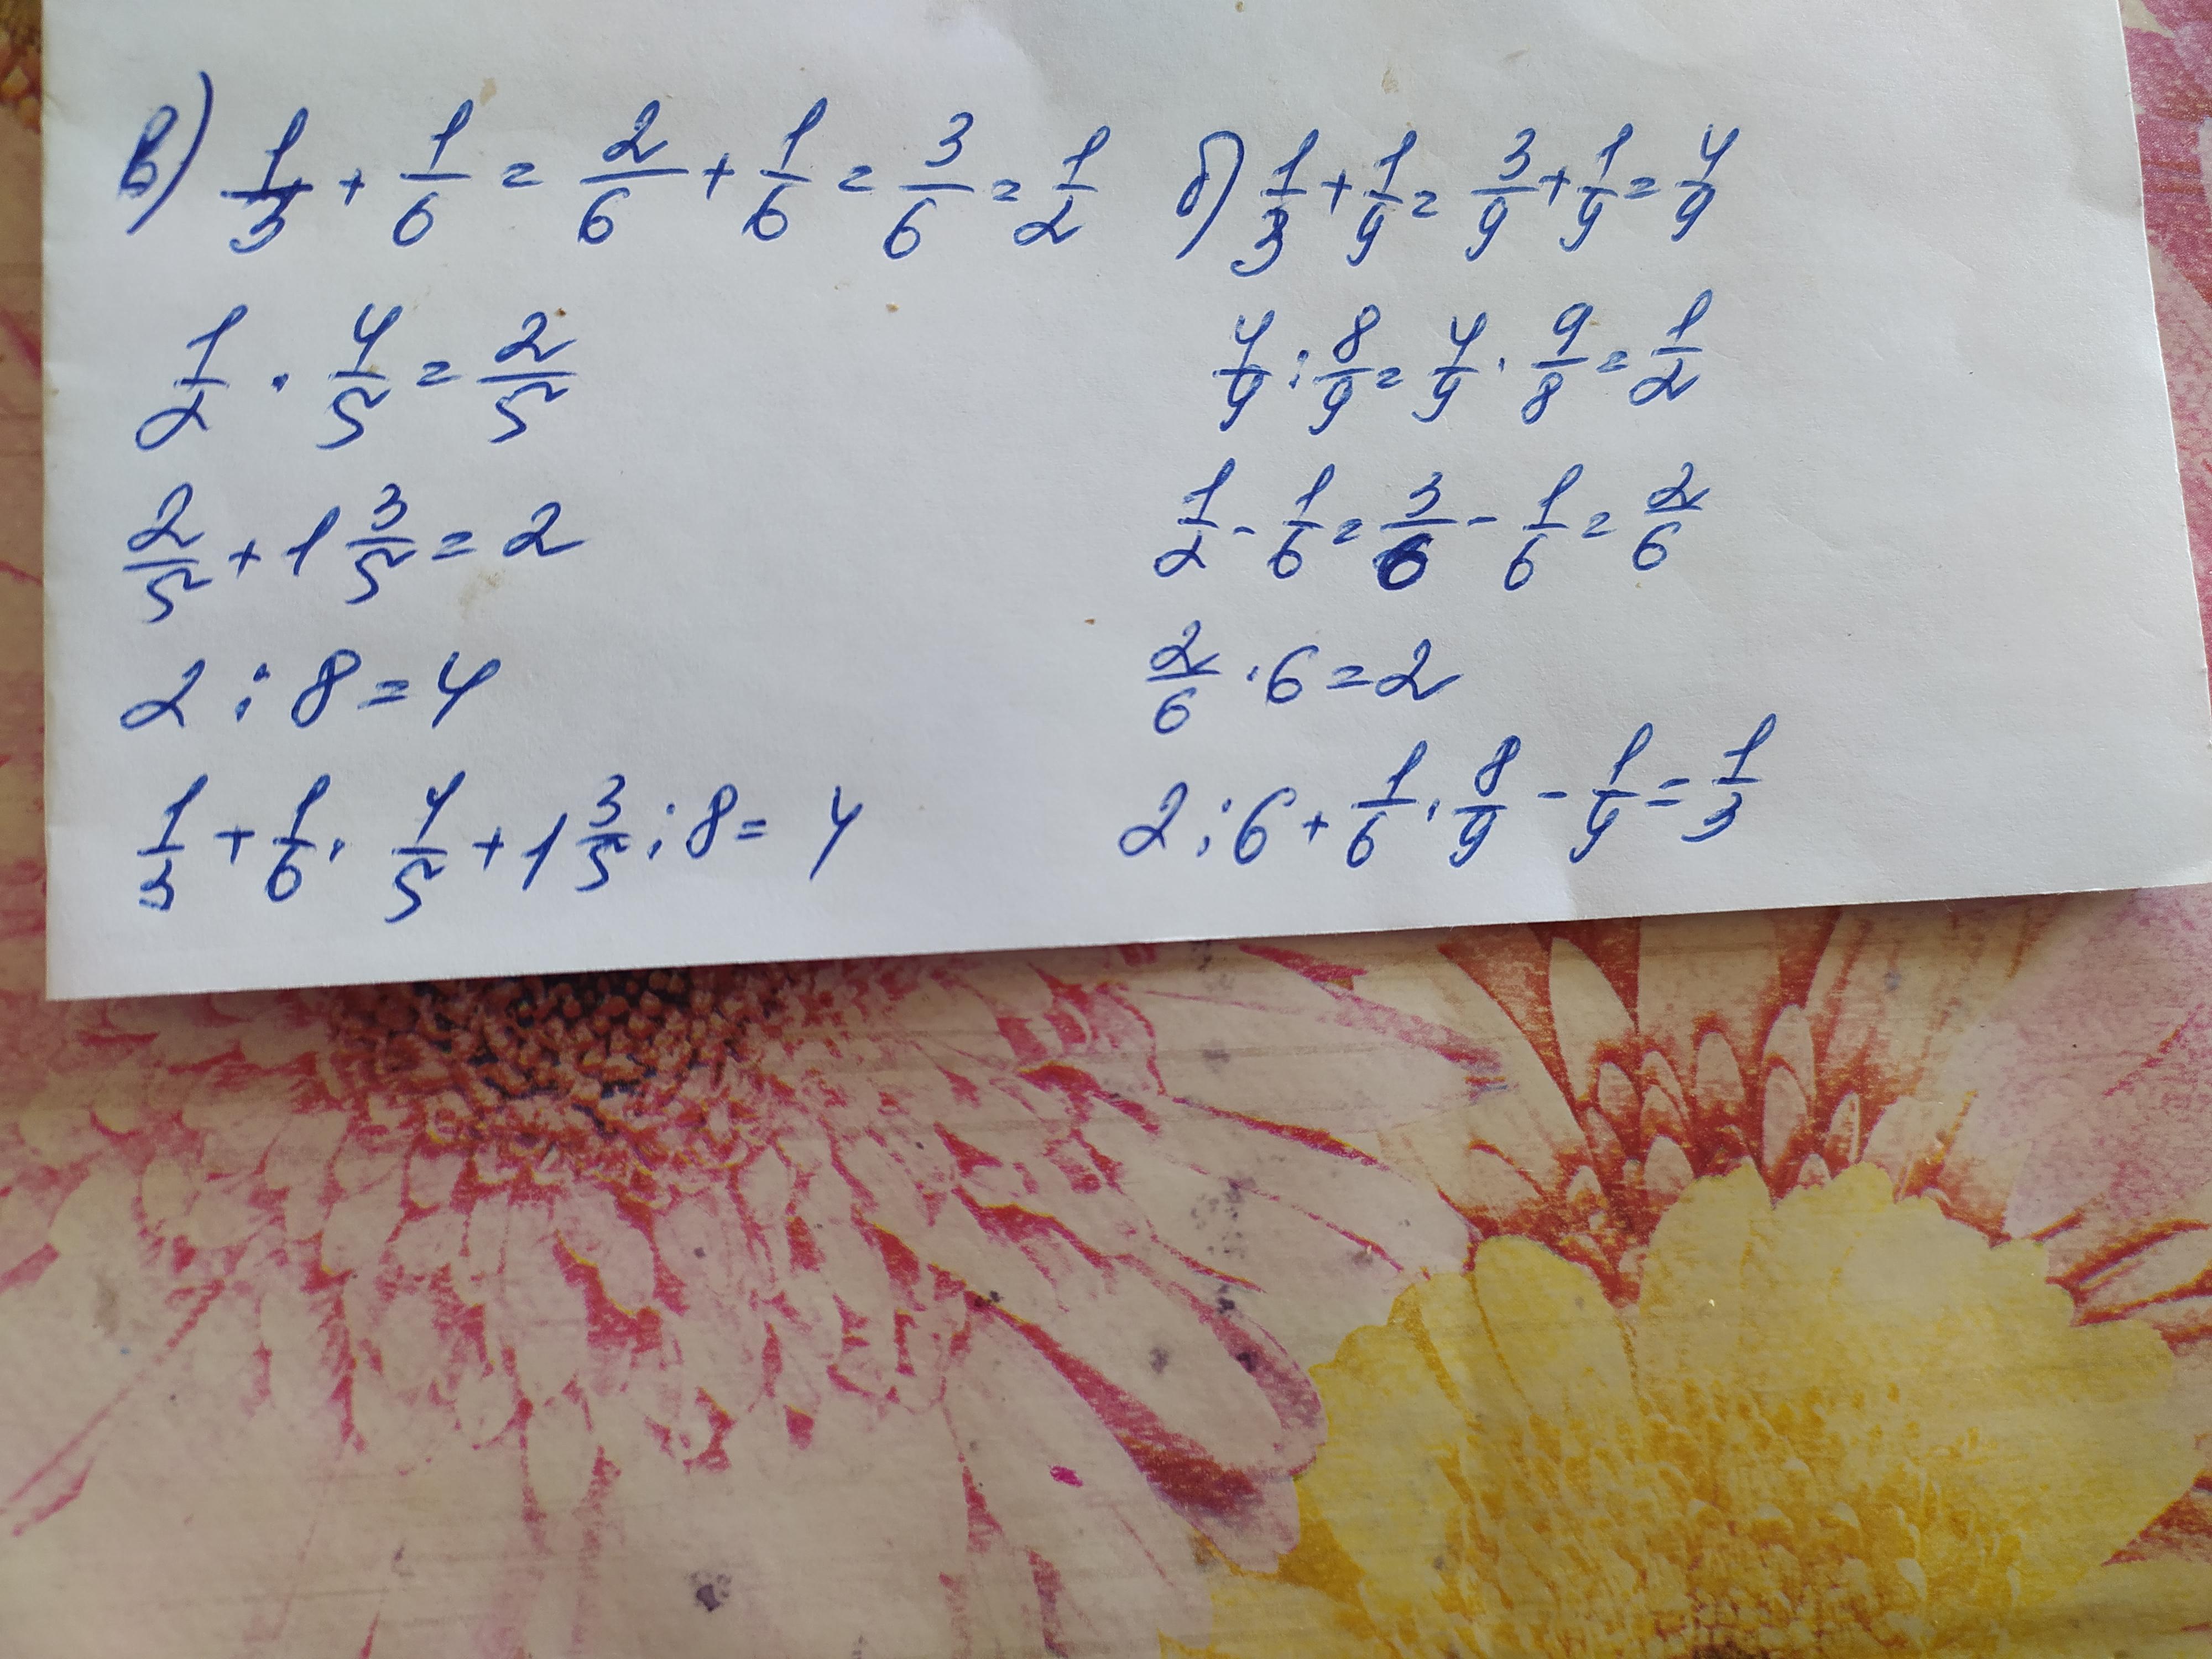 в) 1/3 + 1/6 = 2/6 + 1/6 = 3/6 = 1/2
1/2 · 4/5 = 2/5
2/5 + 1 3/5 = 2
2 : 8 = 4
1/3 + 1/6 · 4/5 + 1 3/5 : 8 = 4
б) 1/3 + 1/9 = 3/9 + 1/9 = 4/9
4/9 : 8/9 = 4/9 · 9/8 = 1/2
1/2 - 1/6 = 3/6 - 1/6 = 2/6
2/6 · 6 = 2
2 : 6 + 1/6 · 8/9 - 1/9 = 1/3